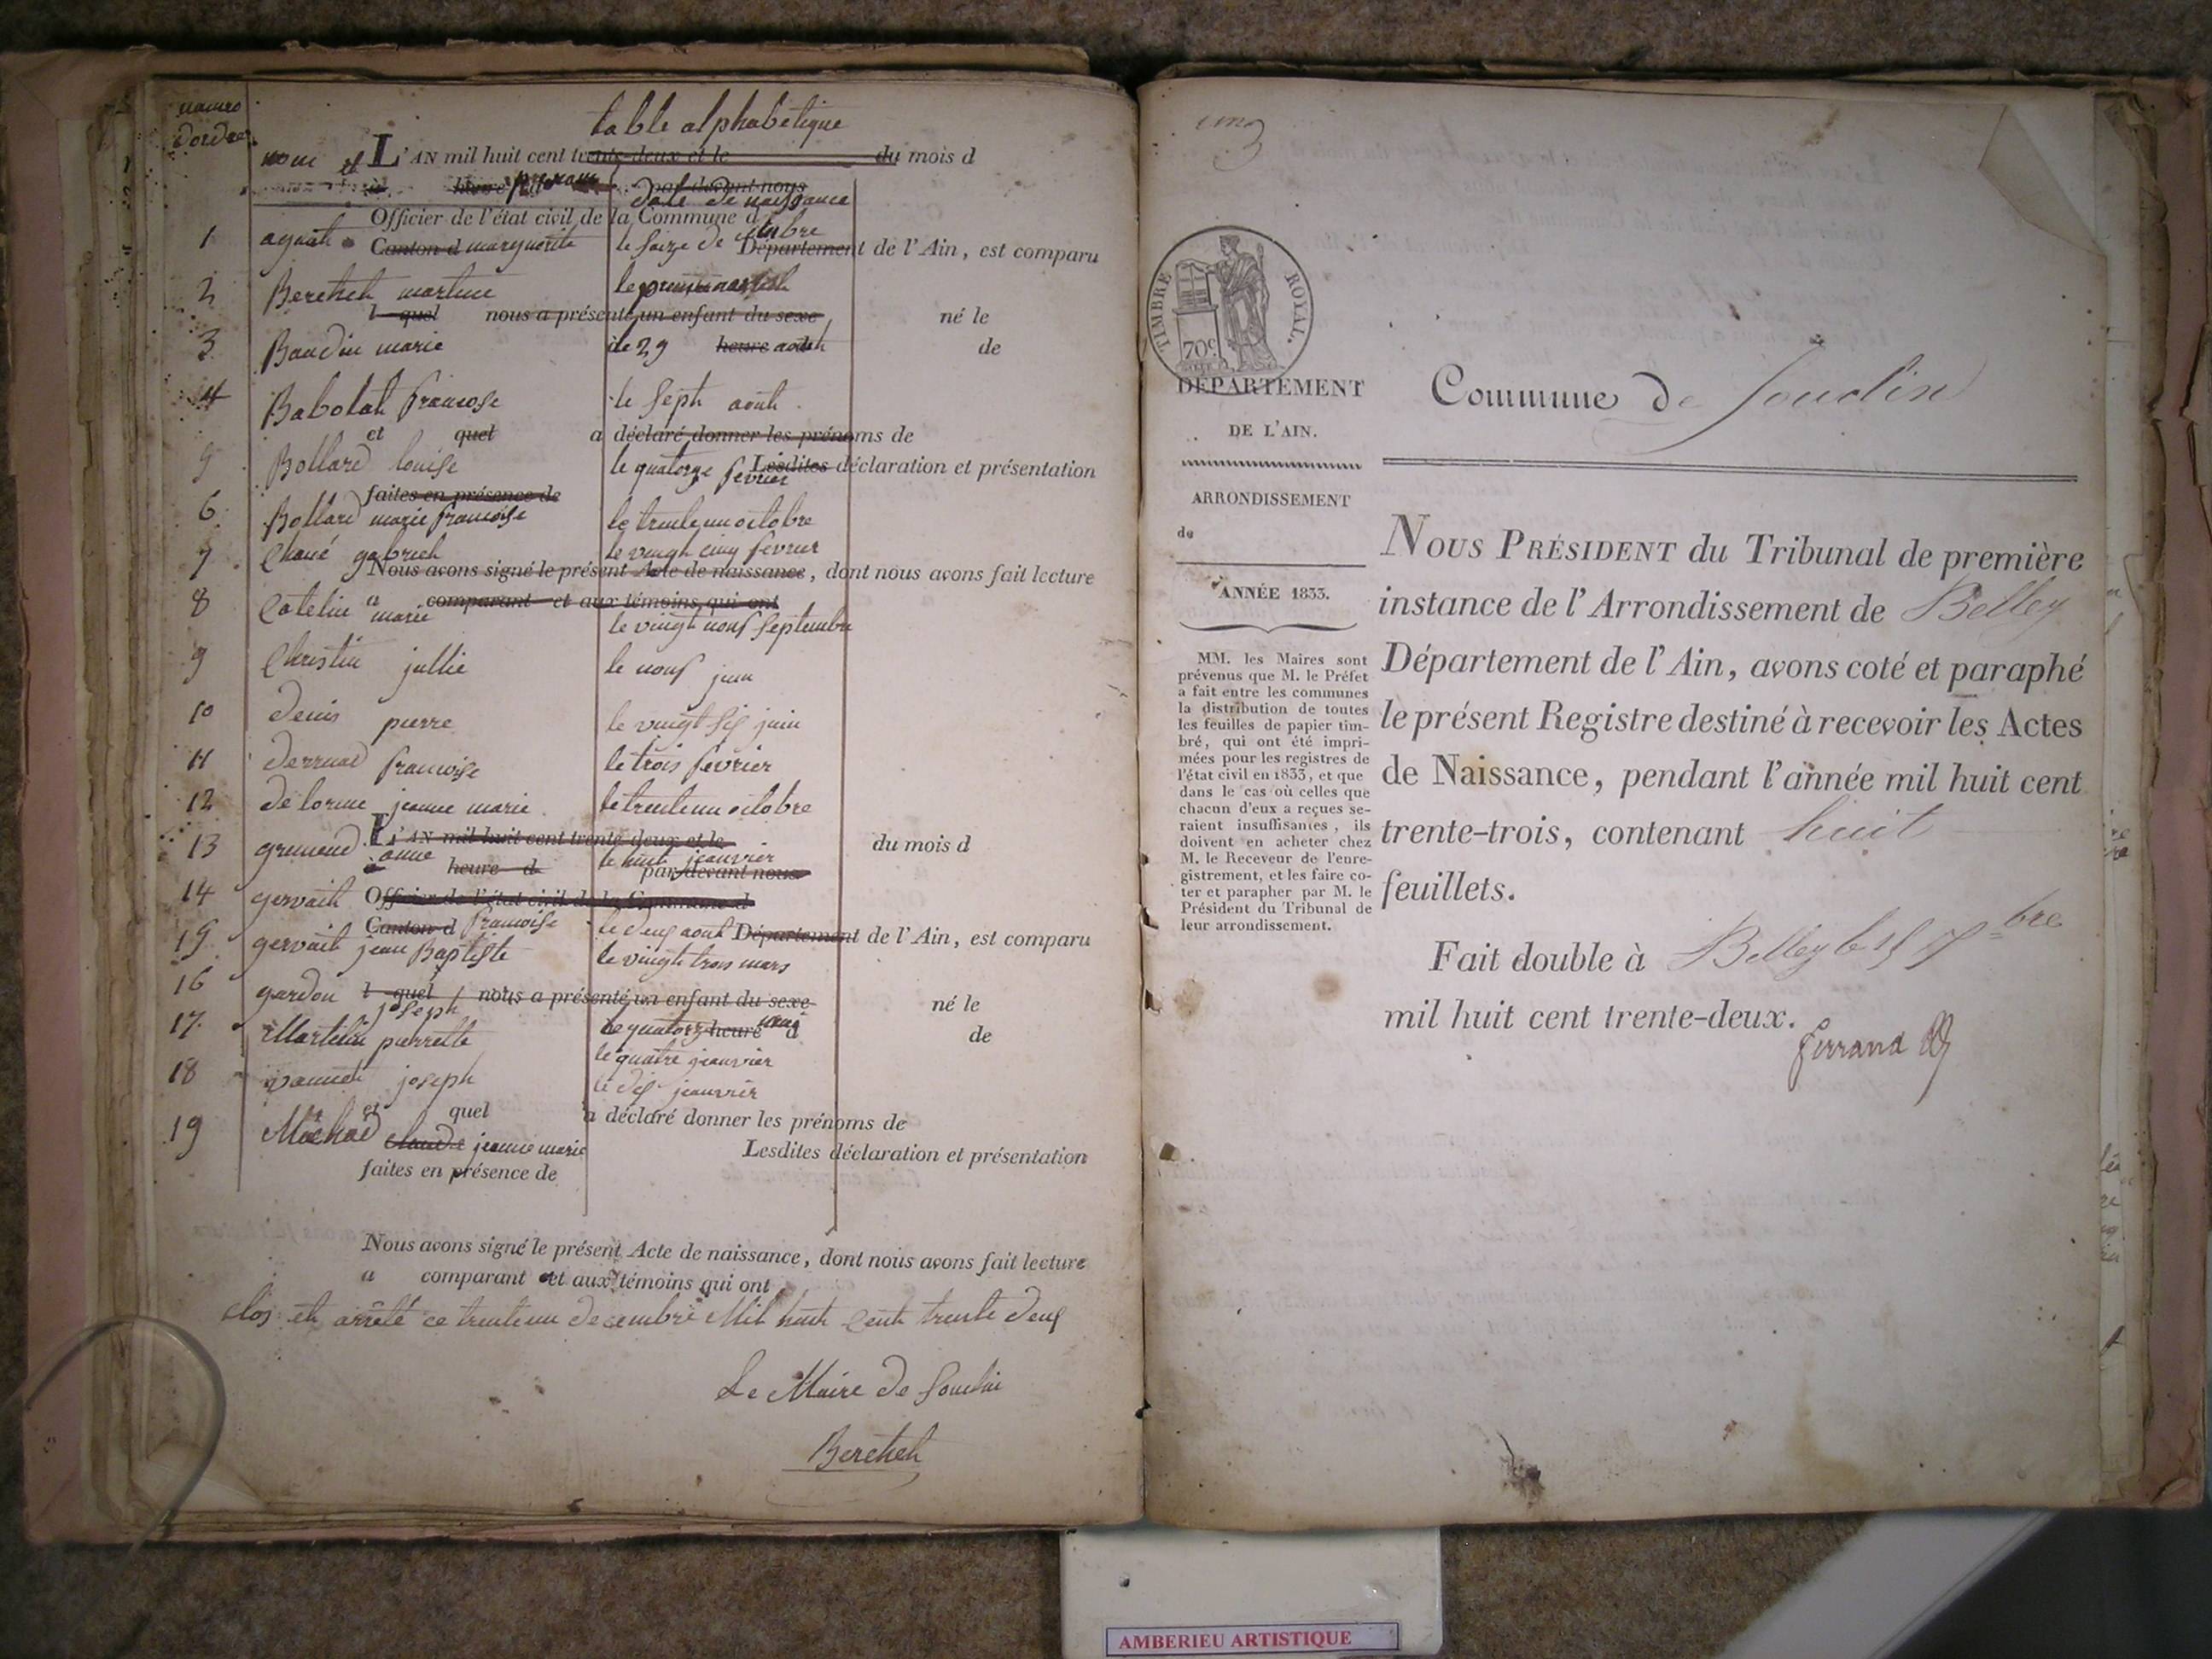 numro
dordre
table alphabétique
nom et L'AN mil huit cent trente-deux et le du mois d
à heure prénom par-devant nous
date de naissance
Officier de l'état civil de la Commune d
1 aguait Canton d marguerite le seize de cembre Département de l'Ain, est comparu
2 Berthet martine le premier
l quel nous a présenté un enfant du sexe né le
3 Baudin marie le 29 heure août de
4 Babolat francoise le sept août
et quel a déclaré donner les prénoms de
5 Bollard louise le quatorze fevrier Lesdites déclaration et présentation
faites en présence de
6 Bollard marie francoise le trente un octobre
7 gabriel le vingt cinq fevrier
Nous avons signé le présent Acte de naissance, dont nous avons fait lecture
a comparant et aux témoins qui ont
8 Catelin marie le vingt nouf septembre
9 Christin jullie le nouf juin
10 denis pierre le vingt six juin
11 derruad francoise le trois fevrier
12 delorme jeanne marie le trente un octobre
L'AN mil huit cent trente-deux et le du mois d
13 gremend anne le huit jeanvier
à heure d par-devant nous
14 gervait Officier de l'état civil de la Commune d
Canton d francoise le deux aout Département de l'Ain, est comparu
15 gervait jean Baptiste le vingt trois mars
16 gardon l quel nous a présenté un enfant du sexe né le
joseph le quatorz heure d de
17 Martelin pierrette le quatre jeanvier
18 vannet joseph le dix jeanvier
et quel a déclaré donner les prénoms de
19 Michad claude jeanne marie
Lesdites déclaration et présentation
faites en présence de
Nous avons signé le présent Acte de naissance, dont nous avons fait lecture
a comparant et aux témoins qui ont
clos et arrêté ce trente un decembre Mil huit Cent trente deux
Le Maire de Souclin
Berthet
TIMBRE ROYAL.
70c.
DÉPARTEMENT
DE L'AIN.
ARRONDISSEMENT
de
ANNÉE 1833.
MM. les Maires sont
prévenus que M. le Préfet
a fait entre les communes
la distribution de toutes
les feuilles de papier tim-
bré, qui ont été impri-
mées pour les registres de
l'état civil en 1833, et que
dans le cas où celles que
chacun d'eux a reçues se-
raient insuffisantes, ils
doivent en acheter chez
M. le Receveur de l'enre-
gistrement, et les faire co-
ter et parapher par M. le
Président du Tribunal de
leur arrondissement.
Commune de Souclin
NOUS PRÉSIDENT du Tribunal de première
instance de l'Arrondissement de Belley
Département de l'Ain, avons coté et paraphé
le présent Registre destiné à recevoir les Actes
de Naissance, pendant l'année mil huit cent
trente-trois, contenant huit
feuillets.
Fait double à Belley le 15 7bre
mil huit cent trente-deux.
ferrand
AMBERIEU ARTISTIQUE